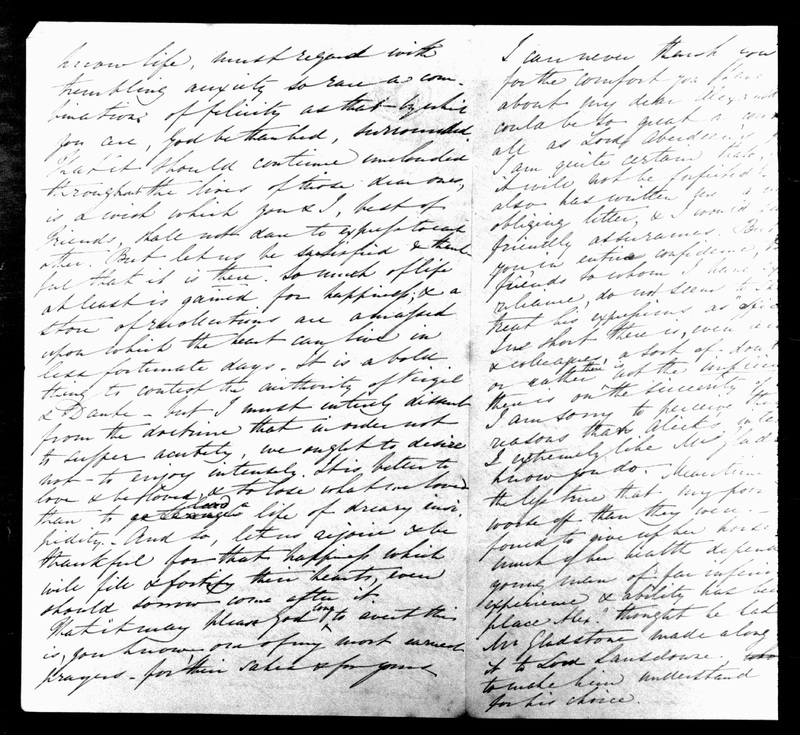 know life, must regard with
trembling anxiety so rare a com-
bination of felicity as that by which
you are, God be thanked, surrounded.
That it should continue unclouded
throughout the lives of those dear ones,
is a wish which you & I, best of
friends, shall not dare to express to each
other. But let us be satisfied & thank-
ful that it is there. So much of life
at least is gained for happiness; & a
store of recollections are amassed
upon which the heart can live in
less fortunate days. It is a bold
thing to contest the authority of Virgil
& Dante - but I must entirely dissent
from the doctrine that in order not
to suffer acutely, we ought to desire
not to enjoy intensely. It is better to
love & be loved, & to lose what we loved
than to lead a life of dreary insi-
pidity. And so, let us rejoice & be
thankful for that happiness which
will fill & fortify their hearts, even
should sorrow come after it
That it may please God long to avert this
is, you know, one of my most earnest
prayers - for their sakes & for yours
I can never thank you
for the comfort you have
about my dear Alex
could be so great a
all as Lord Aberdeen's
I am quite certain that,
it will not be forfeited
also has written you a
obliging letter, & I would
friendly assurances. But
you, in entire confidence,
friends to whom I have
reliance, do not seem to
treat his expressions as
In short there is, even
& colleagues, a sort of
or rather then not the
there is on the sincerity of
I am sorry to perceive
reasons that Aleck's
I extremely like Mr Glad
know you do. Meantime
the less true that my poor
worse off than they were -
found to give up her house
much of her health depend
young men of far inferior
experience & ability has been
place Alex thought he led
Mr Gladstone made along
it to Lord Lansdowne.
to make him understand
for his choice.